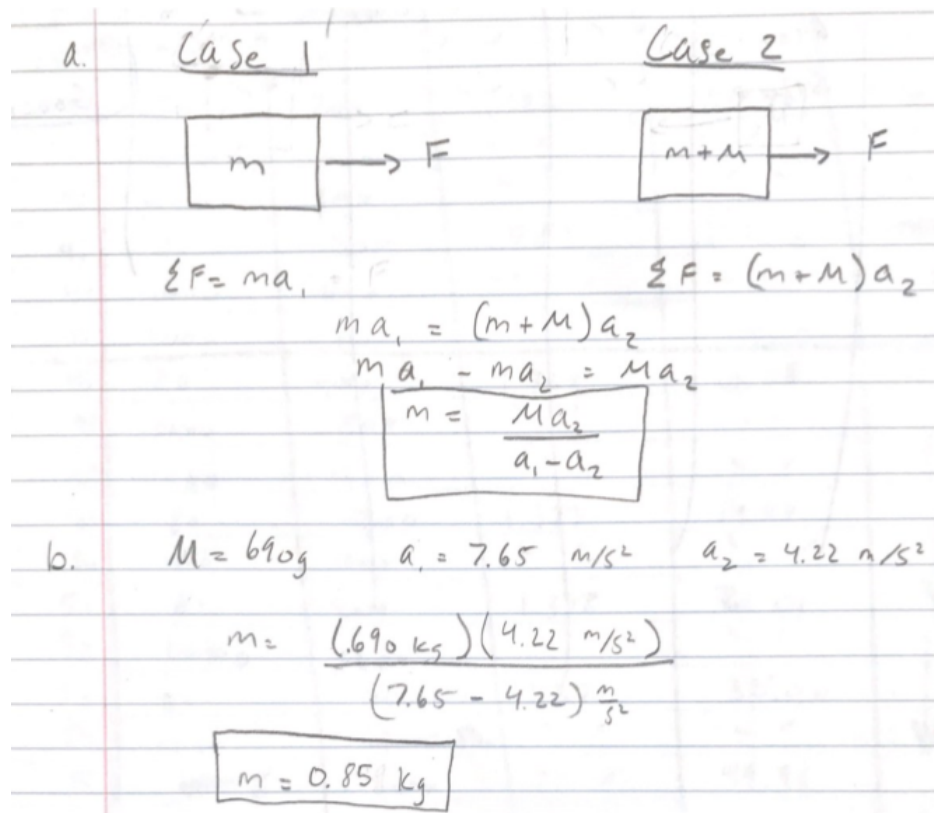 a. Case 1 Case 2
m → F m+M → F
ΣF = ma₁ = F ΣF = (m+M)a₂
ma₁ = (m+M)a₂
ma₁ - ma₂ = Ma₂
m = Ma₂ / (a₁-a₂)
b. M = 690g a₁ = 7.65 m/s² a₂ = 4.22 m/s²
m = (.690 kg)(4.22 m/s²) / (7.65 - 4.22) m/s²
m = 0.85 kg